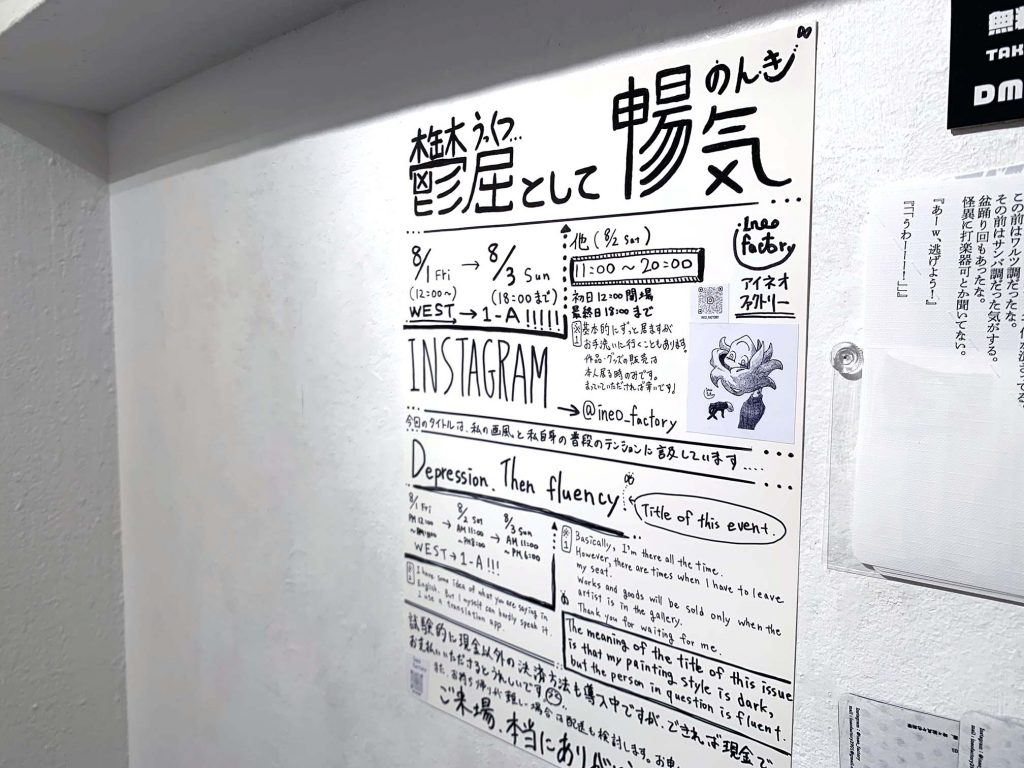 うっくつ…
鬱屈として
のんき
暢気
8/1 Fri → 8/3 Sun
(12:00〜) (18:00まで)
WEST → 1-A!!!!!
他 (8/2 Sat)
11:00〜20:00
初日12:00開場
最終日18:00まで
※1 基本的にずっと居ますが
お手洗いに行くこともあります。
作品・グッズの販売は
本人居る時のみです。
まっていていただければ幸いです!
ineo factory
アイネオ
ファクトリー
INSTAGRAM
→ @ineo_factory
今回のタイトルは、私の画風と私自身の普段のテンションに設しています....
Depression. Then fluency
Title of this event.
8/1 Fri → 8/2 Sat → 8/3 Sun
PM 12:00 AM 11:00 AM 11:00
〜PM8:00 〜PM8:00 〜PM6:00
WEST → 1-A!!!
※1 Basically, I'm there all the time.
However, there are times when I have to leave
my seat.
Works and goods will be sold only when the
artist is in the gallery.
Thank you for waiting for me.
※1 I have some idea of what you are saying in
English. But I myself can hardly speak it.
I use a translation app.
The meaning of the title of this issue
is that my painting style is dark,
but the person in question is fluent.
試験的に現金以外の決済方法も導入中ですが、できれば現金で
お支払いいただけるとうれしいです
また、お持ち帰りが難しい場合は配送も検討します。お申
ご来場、本当にありが
無料
TAK
DM
この前はワルツ調だったな。
その前はサンバ調だった気がする。
盆踊り回もあったな。
怪異に打楽器可とか聞いてない。
『あーw、逃げよう!』
『「うわーーー!」』